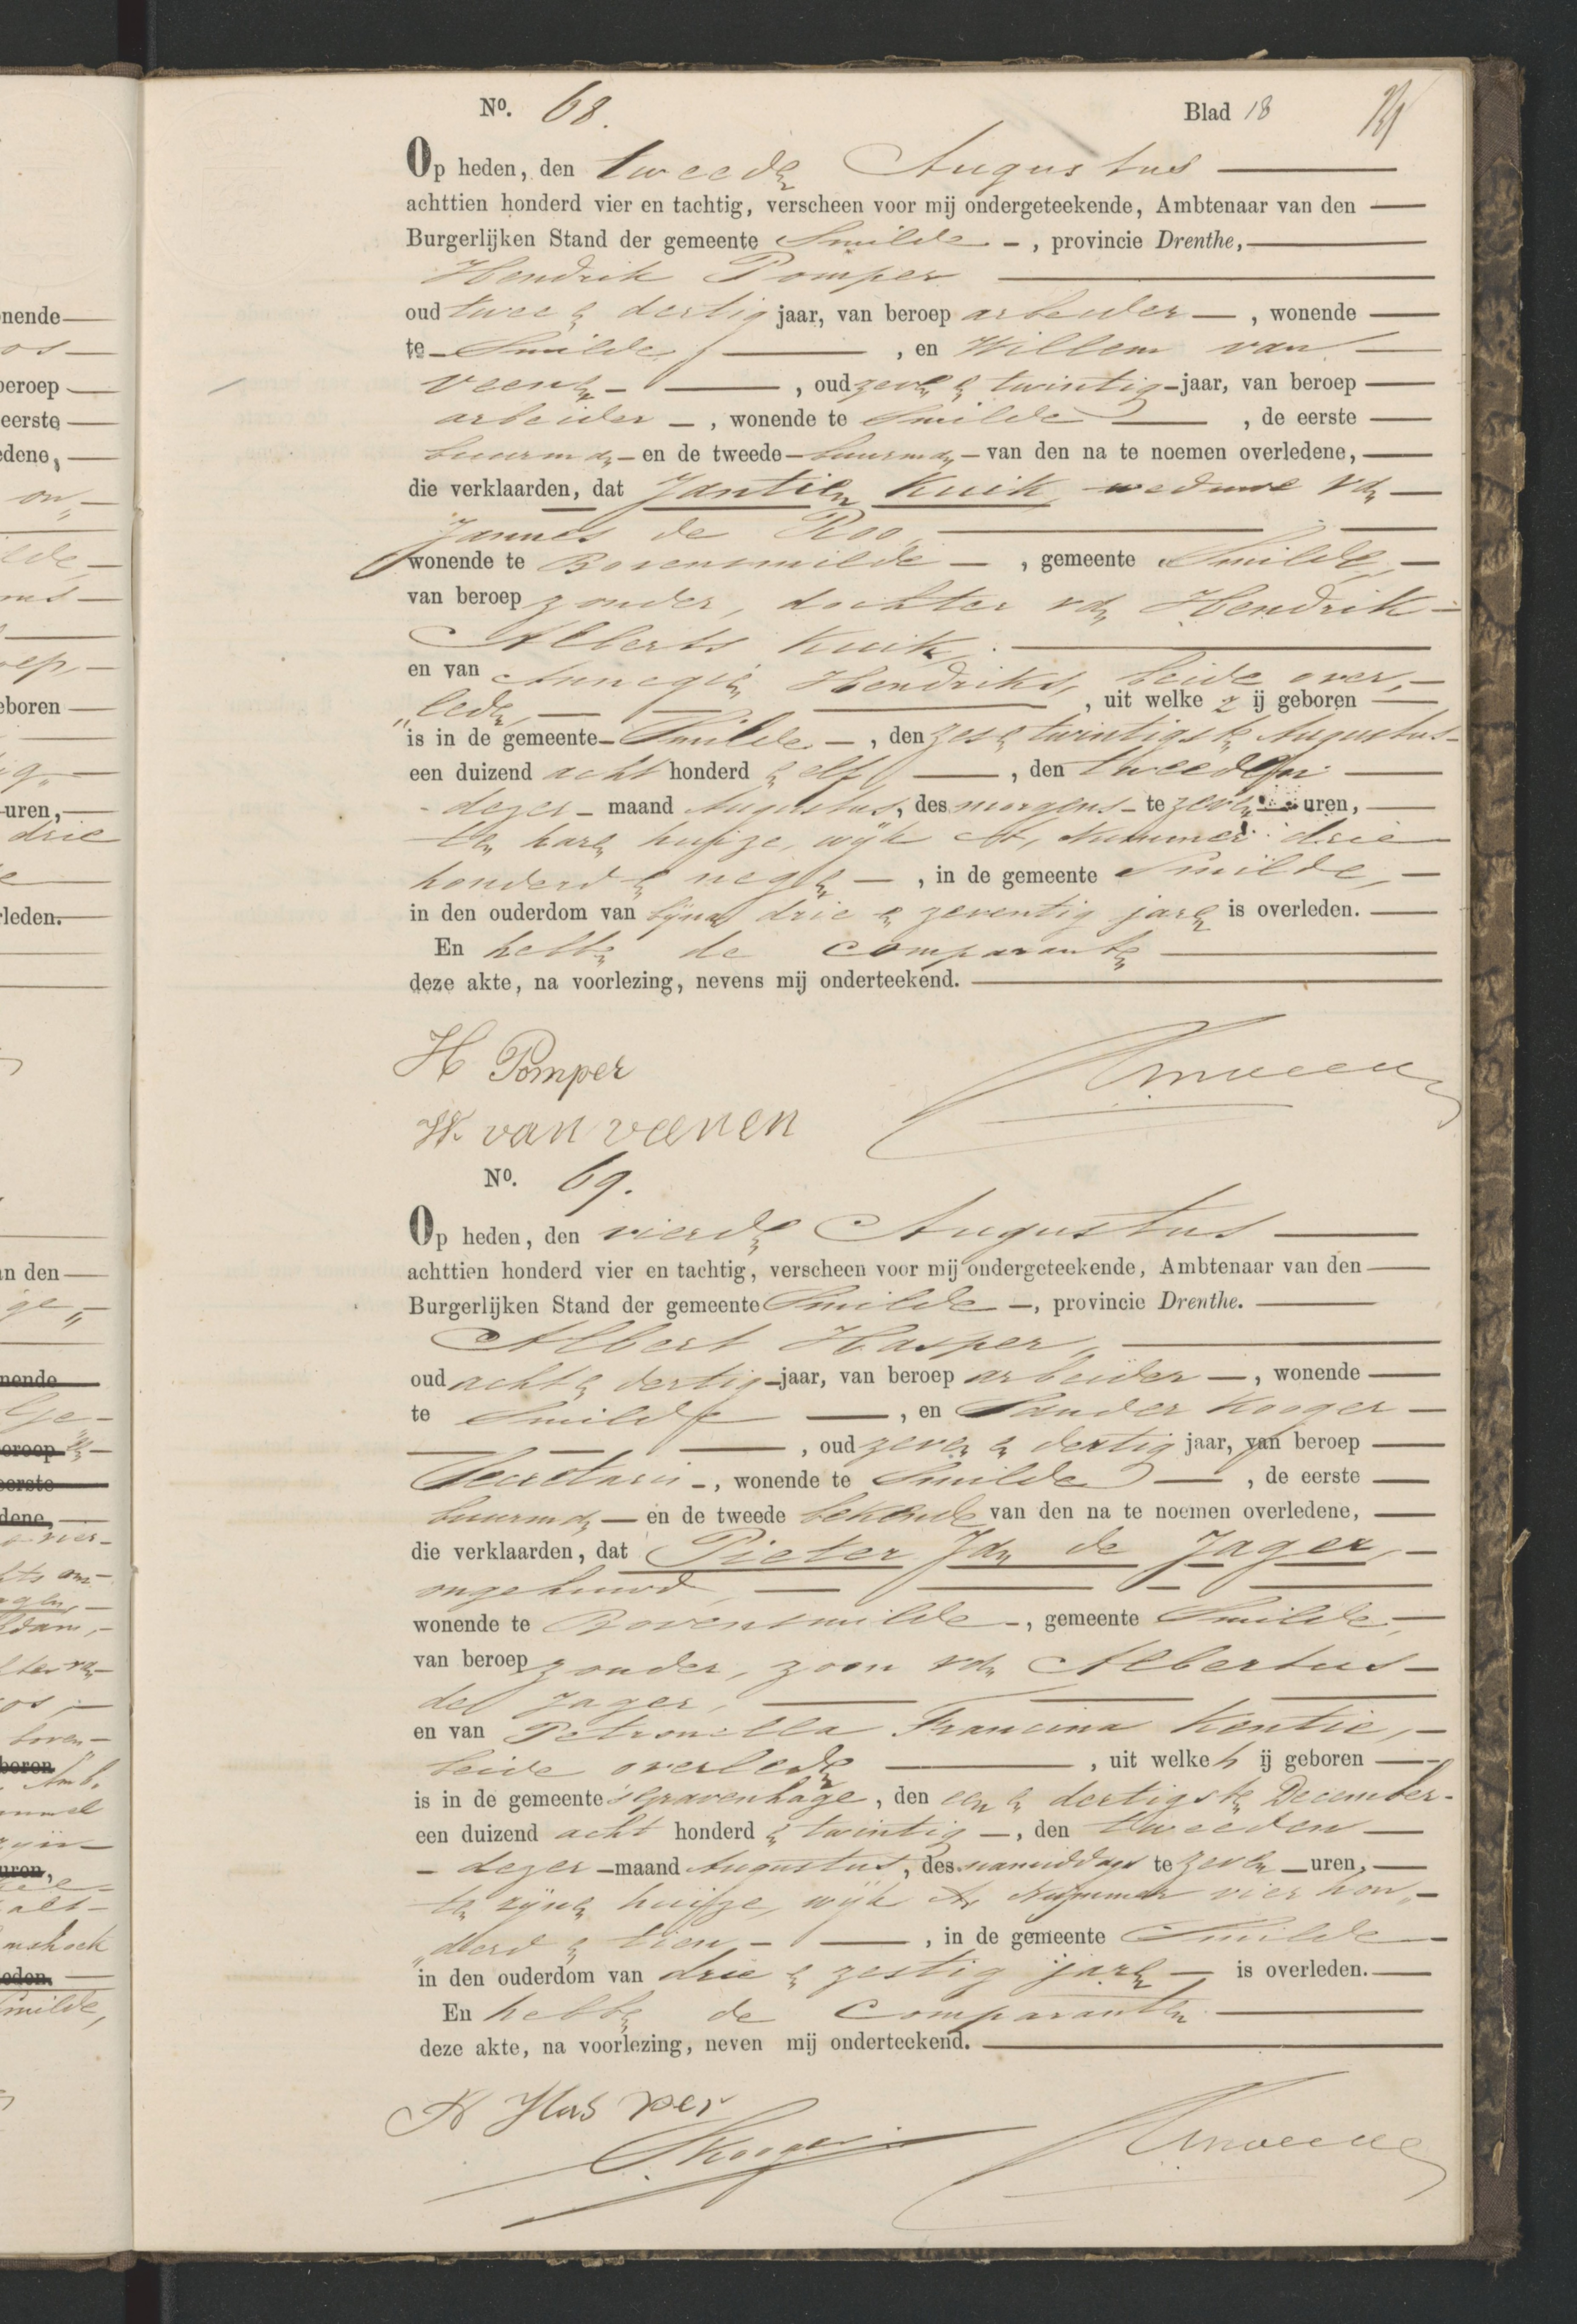 No. 68.
Blad 18
Op heden, den tweeden Augustus
achttien honderd vier en tachtig, verscheen voor mij ondergeteekende, Ambtenaar van den
Burgerlijken Stand der gemeente Smilde, provincie Drenthe,
Hendrik Pomper
oud twee en dertig jaar, van beroep arbeider, wonende
te Smilde, en Willem van
Veenen, oud zeven en twintig jaar, van beroep
arbeider, wonende te Smilde, de eerste
buurman en de tweede buurman van den na te noemen overledene,
die verklaarden, dat Jantien Kuik, weduwe van
Jannes de Roo,
wonende te Bovensmilde, gemeente Smilde,
van beroep zonder, dochter van Hendrik
Alberts Kuik,
en van Annegien Hendriks, beide over-
"leden, uit welke zij geboren
is in de gemeente Smilde, den zes en twintigsten Augustus
een duizend acht honderd en elf, den tweeden
dezer maand Augustus, des morgens te zeven uren,
ten haren huize, wijk A, Nummer drie
honderd en negen, in de gemeente Smilde,
in den ouderdom van bijna drie en zeventig jaren is overleden.
En hebben de comparanten
deze akte, na voorlezing, nevens mij onderteekend.
H Pomper
W. van veenen
No. 69.
Op heden, den vierden Augustus
achttien honderd vier en tachtig, verscheen voor mij ondergeteekende, Ambtenaar van den
Burgerlijken Stand der gemeente Smilde, provincie Drenthe.
Albert Hasper,
oud acht en dertig jaar, van beroep arbeider, wonende
te Smilde, en Sander Kooger
, oud zeven en dertig jaar, van beroep
Secretaris, wonende te Smilde, de eerste
buurman en de tweede bekende van den na te noemen overledene,
die verklaarden, dat Pieter Jan de Jager,
ongehuwd,
wonende te Bovensmilde, gemeente Smilde,
van beroep zonder, zoon van Albertus
de Jager,
en van Petronella Francina Kentie,
beide overleden, uit welke hij geboren
is in de gemeente 'sGravenhage, den een en dertigsten December
een duizend acht honderd en twintig, den tweeden
dezer maand Augustus, des namiddags te zeven uren,
ten zijnen huize, wijk A, Nummer vier hon-
"derd en tien, in de gemeente Smilde
in den ouderdom van drie en zestig jaren is overleden.
En hebben de Comparanten
deze akte, na voorlezing, neven mij onderteekend.
A Hasper
SKooger